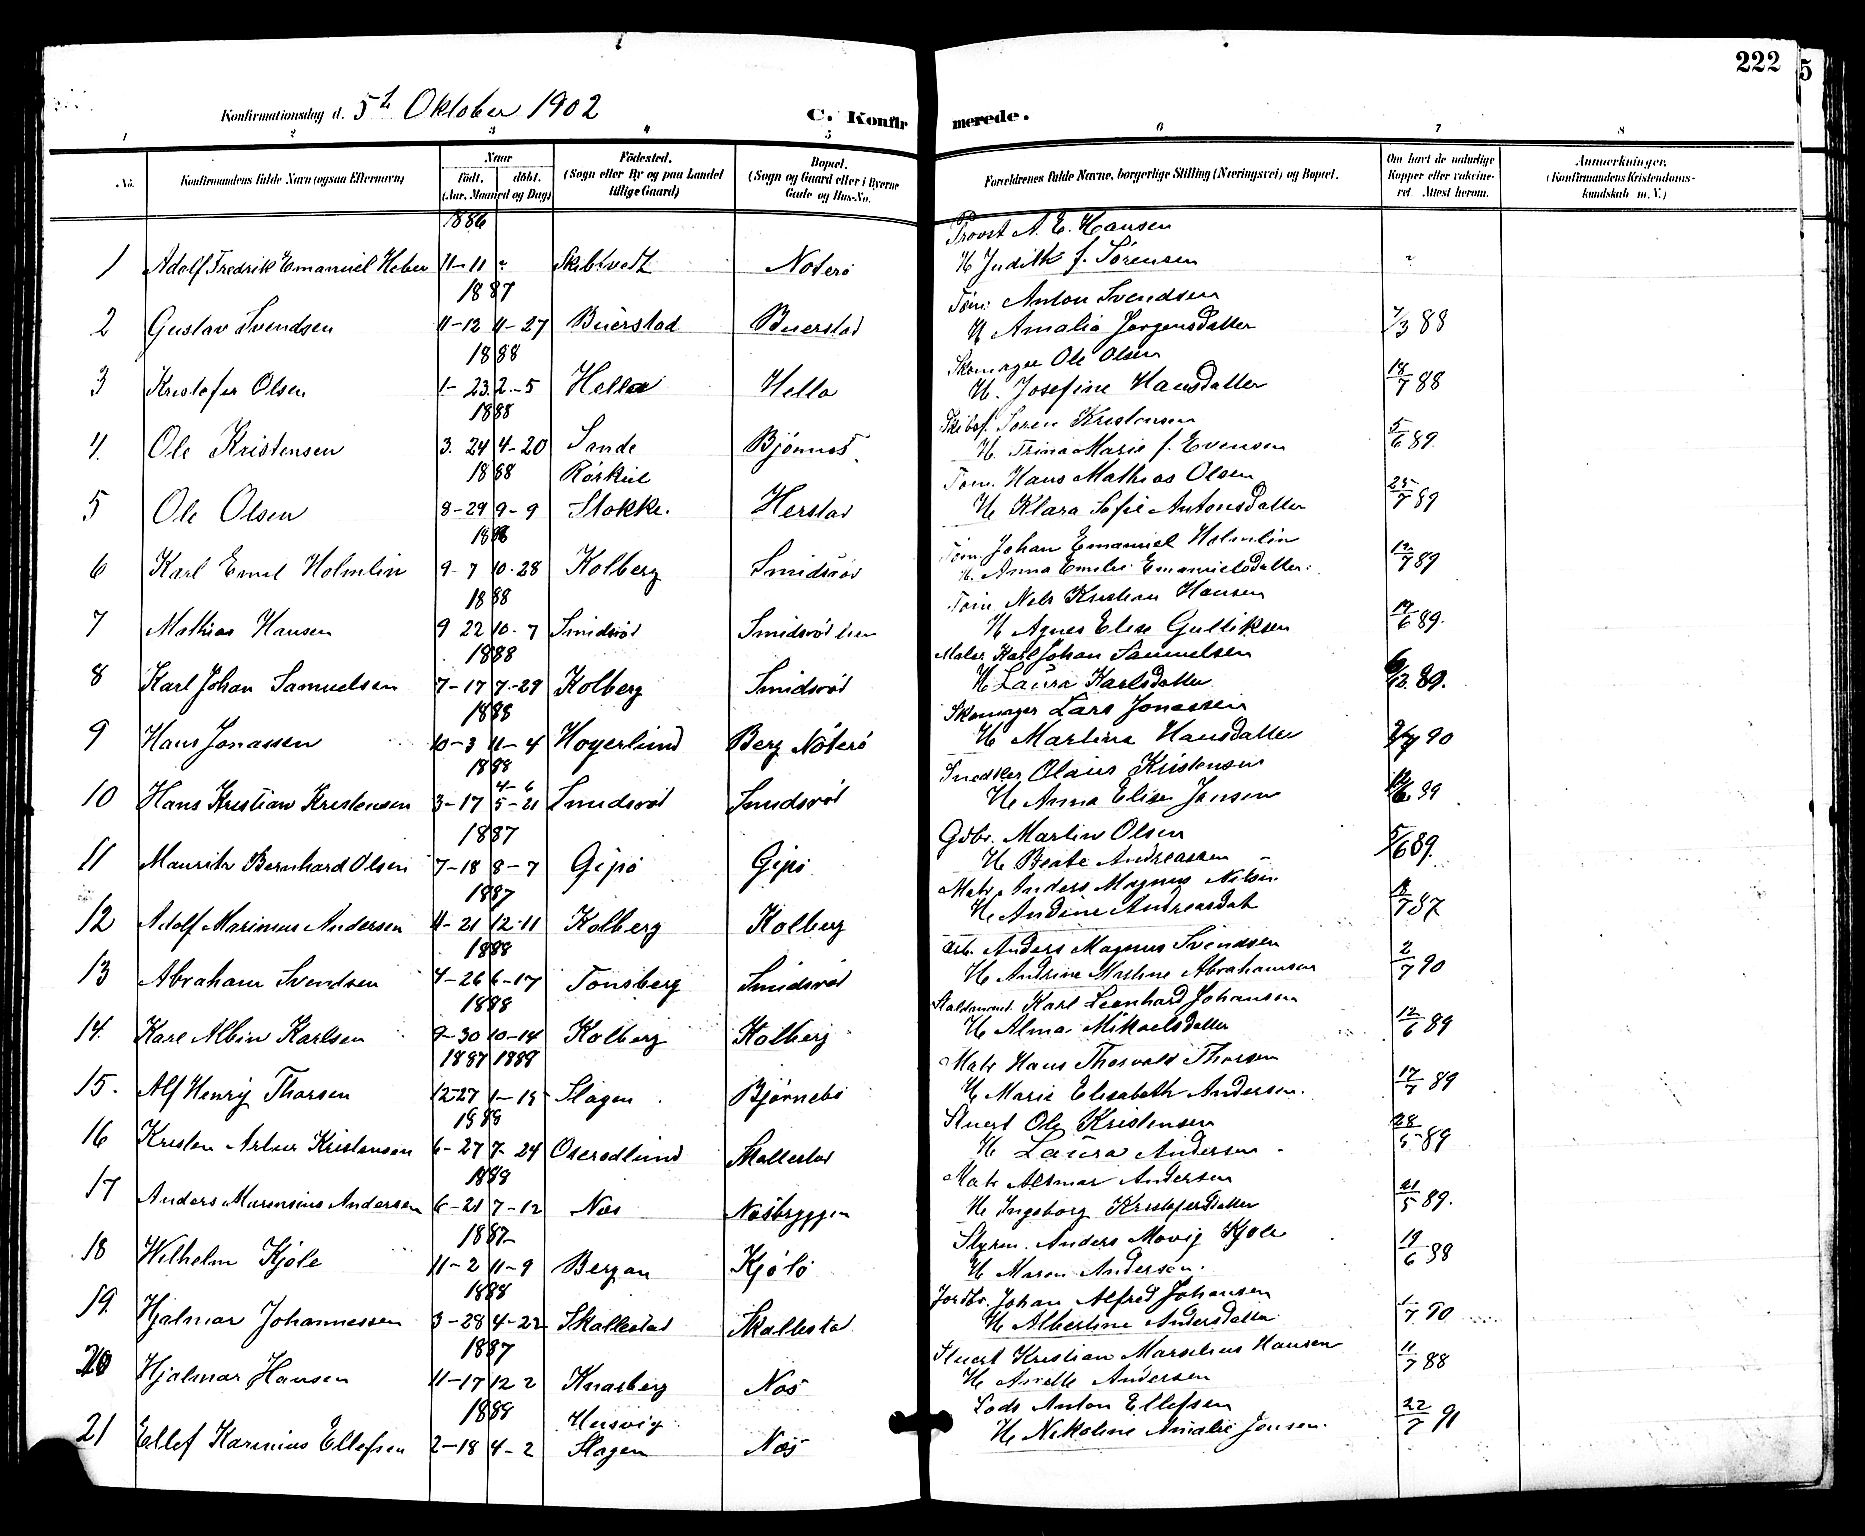 222
5
Konfirmationsdag d. 5te Oktober 1902
C. Konfirmerede.
1 2 3 4 5 6 7 8
No. Konfirmandens fulde Navn (ogsaa Efternavn) Naar Födt. döbt. (Aar, Maaned og Dag) Födested. (Sogn eller By og paa Landet tillige Gaard) Bopæl. (Sogn og Gaard eller i Byerne Gade og Hus-No. Forældrenes fulde Navne, borgerlige Stilling (Næringsvei) og Bopæl. Om havt de naturlige Kopper eller vaccineret. Attest herom. Anmerkninger. (Konfirmandens Kristendomskundskab m. V.)
1886 Provst A. E. Hansen
1 Adolf Fredrik Emanuel Heber 11-11 Skibtvedt Noterö H Judith f. Sörensen
1887 Töm: Anton Svendsen
2 Gustav Svendsen 11-12 4-27 Buerstad Buerstad H Amalie Jörgensdatter 7/3 88
1888 Skomager Ole Olsen
3 Kristofer Olsen 1-23 2-5 Hella Hella H. Josefine Hansdatter 18/7 88
1888 Skibsf. Sören Kristensen
4. Ole Kristensen 3. 24 4-20 Sande Bjönnes H. Trina Marie f. Evensen 5/6 89
1888 Rörkul Töm. Hans Mathias Olsen
5 Ole Olsen 8-29 9-9 Stokke. Herstad H Klara Sofie Antonsdatter 25/7 89
1888 Töm. Johan Emanuel Holmlin
6 Karl Emil Holmlin 9-7 10-28 Kolberg Smidsröd H. Anna Emilie Emanuelsdatter. 12/7 89
1888 Töm Nels Kristian Hansen
7 Mathias Hansen 9 22 10-7 Smidsröd Smidsröd H Agnes Elise Gulliksen 19/6 89.
1888 Maler Karl Johan Samuelsen
8 Karl Johan Samuelsen 7-17 7-29 Kolberg Smidsröd H Laura Karlsdatter 6/12 89.
1888 Skomager Lars Jonassen
9 Hans Jonassen 10-3 11-4 Hogerlund Berg Nöterö H Martina Hansdatter 2/7 90
1888 4-6 Snedker Olaus Kristensen
10 Hans Kristian Kristensen 3-17 5-21 Smidsröd Smidsröd H Anna Elise Jensen 89
1887 Gdbr. Martin Olsen
11 Mauritz Bernhard Olsen 7-18 8-7 Gipö Gipö H Beate Andreassen 5/6 89.
1887 Matr Anders Magnus Nilsen
12 Adolf Marinius Andersen 11-21 12-11 Kolberg Kolberg H Andine Andreasdat 87
1888 Arb. Anders Magnus Svendsen
13 Abraham Svendsen 4-26 6-17 Tönsberg Smidsröd H Andrine Martine Abrahamsen 2/7 90
1888 Karl Leonhard Johansen
14. Karl Albin Karlsen 9-30 10-14 Kolberg Kolberg H Alma Mikaelsdatter 12/6 89
1887 1888 Matr Hans Thorvald Thorsen
15. Alf Henry Thorsen 12-27 1-15 Slagen Bjørnebo H Marie Elisabeth Andersen. 17/7 89
1888 Stuert Ole Kristensen
16 Kristen Artur Kristensen 6-27 7-24 Oserodlund Skallestad H Laura Andersen 28/5 89
1888 Matr Almar Andersen
17 Anders Marensius Andersen 6-21 7-12 Nes Nesbryggen H Ingeborg Kristofersdatter 21/5 89.
1887 Styrm. Anders Movig Kjöle
18 Wilhelm Kjöle 11-2 11-9 Bergan Kjölö H Maren Andersen. 19/6 88
1888 Jordbr. Johan Alfred Johansen
19. Hjalmar Johannessen 3-28 4-22 Skallestad Skallestad H Albertine Andersdatter 1/7 90
1887 Stuert Kristian Marselius Hansen
20 Hjalmar Hansen 11-17 12 2 Knarberg Nes H Anette Andersen 11/7 88
1888 Husvig Lods Anton Ellefsen
21 Ellef Karinius Ellefsen 2-18 4-2 Slagen Nes H Nikoline Amalie Jensen. 22/7 91